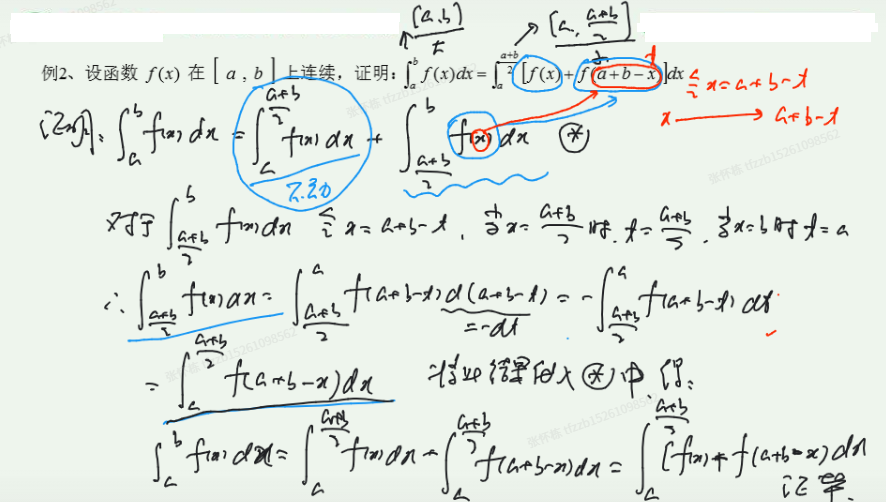 [a,b] → [a, a+b/2]
例2、设函数 f(x) 在 [ a , b ] 上连续，证明：∫_a^b f(x)dx = ∫_a^{(a+b)/2} [f(x)+f(a+b−x)]dx 令 x=a+b-t
x → a+b-t
证明：∫_a^b f(x)dx = ∫_a^{(a+b)/2} f(x)dx + ∫_{(a+b)/2}^b f(x)dx ⊛
不动
对于 ∫_{(a+b)/2}^b f(x)dx 令 x=a+b-t，当x=(a+b)/2 时，t=(a+b)/2，当x=b时 t=a
∴ ∫_{(a+b)/2}^b f(x)dx = ∫_{(a+b)/2}^a f(a+b-t) d(a+b-t) = -∫_{(a+b)/2}^a f(a+b-t) dt
=-dt
= ∫_a^{(a+b)/2} f(a+b-x)dx 将此结果代入⊛中，得：
∫_a^b f(x)dx = ∫_a^{(a+b)/2} f(x)dx + ∫_a^{(a+b)/2} f(a+b-x)dx = ∫_a^{(a+b)/2} [f(x)+f(a+b-x)dx
证毕.
张怀栋 tfzzb15261098562